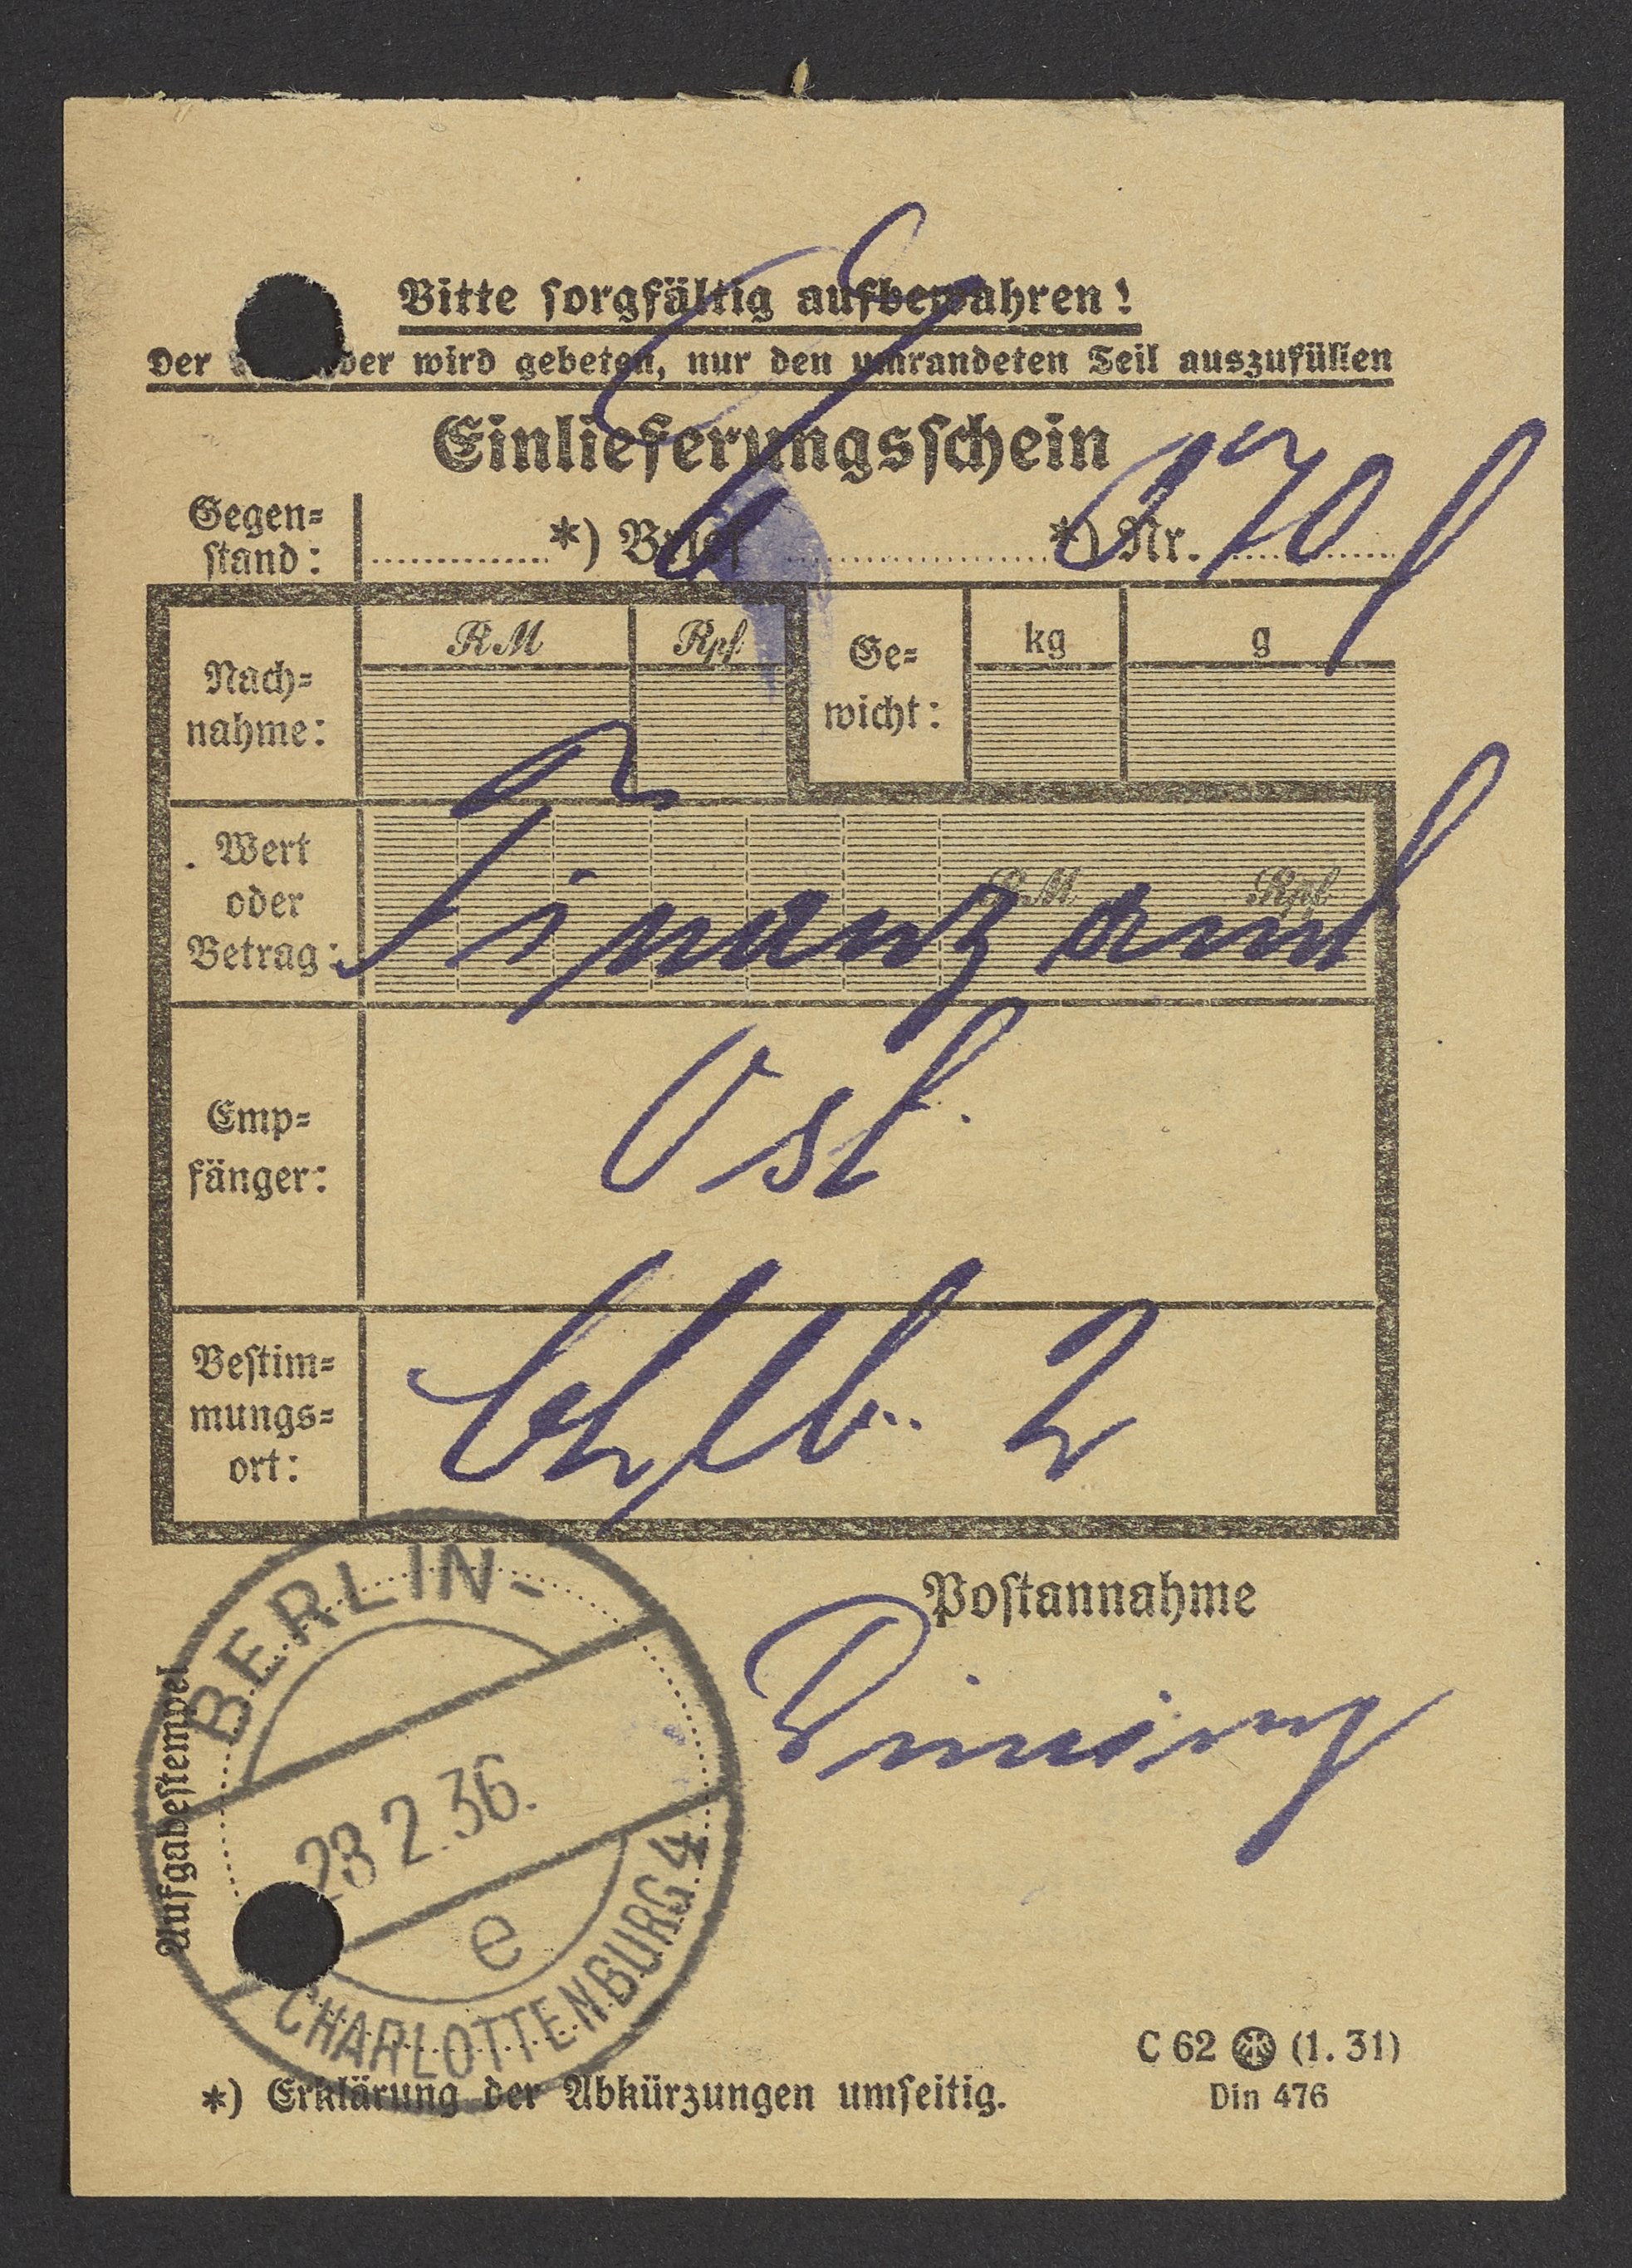 Bitte sorgfältig aufbewahren!
Der der wird gebeten, nur den umrandeten Teil auszufüllen
Einlieferungsschein
Gegen=
stand: *) Brief *) Nr.
Nach=
nahme: RM Rpf
Ge=
wicht: kg g
Wert
oder
Betrag: RM Rpf
Finanzamt
Emp=
fänger: Ost
Bestim=
mungs=
ort: Chlb. 2
Postannahme
Aufgabestempel
BERLIN-
23 2.36.
e
CHARLOTTENBURG 4
C 62 (1. 31)
Din 476
*) Erklärung der Abkürzungen umseitig.